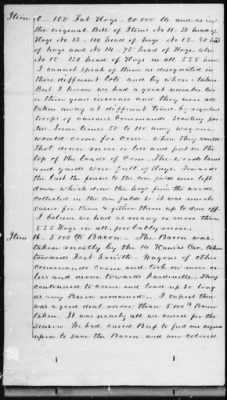 Item 6 - 100 Fat Hogs. 20.000 lbs and as in
the original Bill of Items No 11. 50 head of
Hogs No 12. 110 head of hogs No 13. 50 head
of hogs and No 14. 75 head of Hogs also
No 15 150 head of Hogs in all 555 head
I cannot speak of them as designated in
these different lots and by whom taken
But I know we had a great number two
or three years increase and they were all
taken away at different times, by regular
troops of various Commands Scouting par-
ties. Some times 30 to 40 army wagons
would come for Corn. when they would
Shoot down more or less and put on the
top of the loads of Corn. The wood land
and yards were full of Hogs. Towards
the last the fences to the corn fields were left
down which drew the hogs from the woods
collected in the corn fields so it was much
easier for them getting them up to drive off.
I believe we had as many or more than
555 Hogs in all, probably more.
Item 16. 5.000 lbs Bacon. The Bacon was
taken mostly by the 14 Kansas Cav. taken
towards Fort Smith. Wagons of other
commands came and took one more or
less and drove towards Dardanelle. They
continued to come and load up so long
as any Bacon remained. I expect there
was a good deal more than 5.000 lbs Bacon
taken. It was nearly all we cured for the
season. We had cured Beef to find our negroes
upon to save the Bacon and our colored